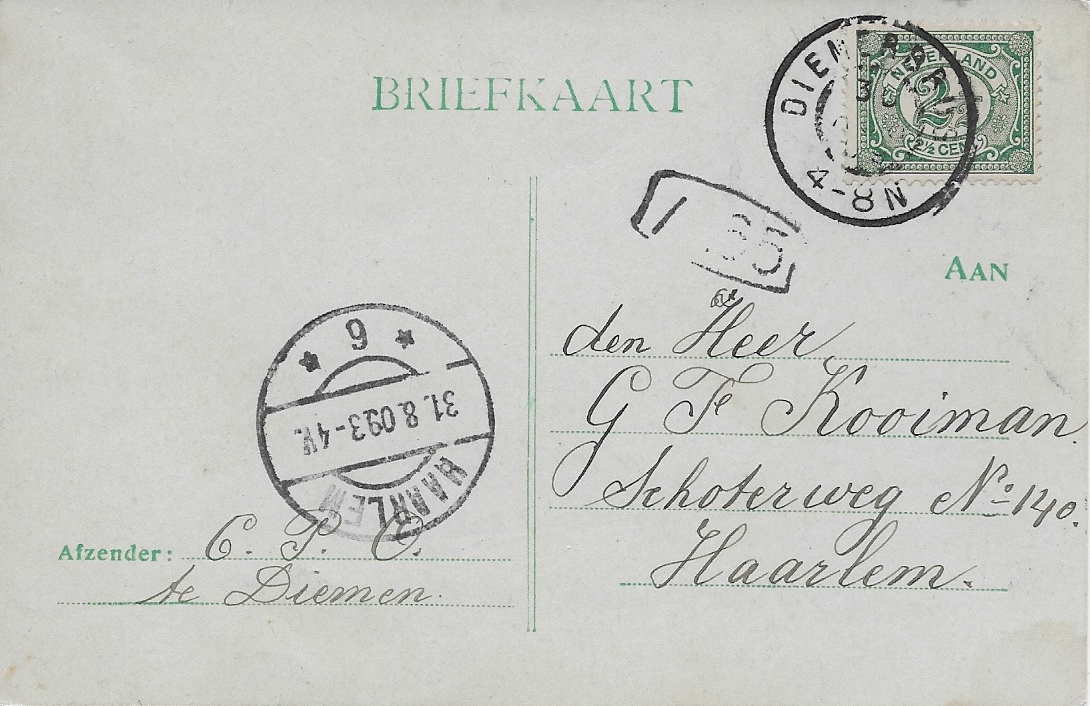 BRIEFKAART
NEDERLAND
2½
2½ CENT
4-8N
AAN
den Heer
G F Kooiman.
Schoterweg No 140.
Haarlem.
6
31.8.09.3-4V.
HAARLEM
Afzender: C. P. C.
te Diemen.